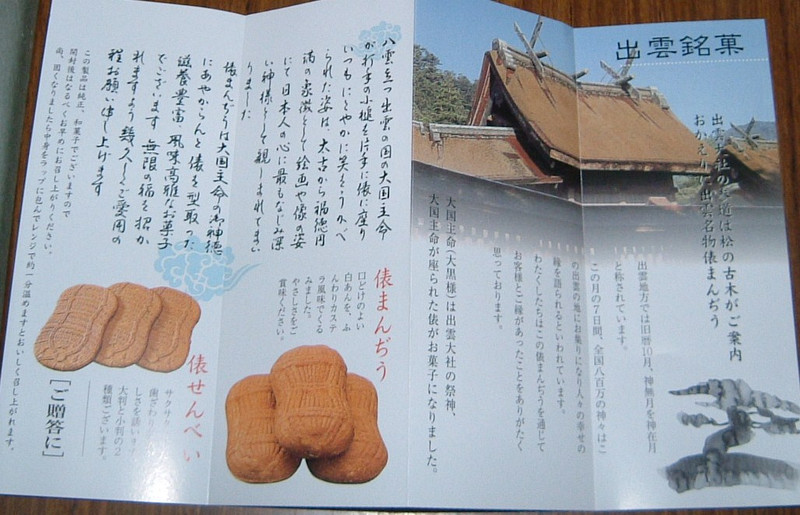 出雲銘菓
出雲大社の参道は松の古木がご案内
おかえりに出雲名物俵まんぢう
出雲地方では旧暦10月、神無月を神在月
と称されています。
この月の7日間、全国八百万の神々はこ
の出雲の地にお集りになり人々の幸せの
縁を語られるといわれています。
わたくしたちはこの俵まんぢうを通じて
お客様とご縁があったことをありがたく
思っております。
大国主命(大黒様)は出雲大社の祭神、
大国主命が座られた俵がお菓子になりました。
八雲立つ出雲の国の大国主命
が打手の小槌を片手に俵に座り
いつもにこやかに笑みをうかべ
られた姿は、太古から福徳円
満の象徴として絵画や像の姿
にて日本人の心に最もなじみ深
い神様として親しまれてまい
りました
俵まんぢうは大国主命の御神徳
にあやからんと俵を型取った
滋養豊富、風味高雅なお菓子
でございます 無限の福を招か
れますよう 幾久しくご愛用の
程お願い申し上げます
俵まんぢう
口どけのよい
白あんを、ふ
んわりカステ
ラ風味でくる
みました。
やさしさをご
賞味ください。
俵せんべい
サクサク
歯ざわり
しさを誘います
大判と小判の2
種類ございます。
[ご贈答に]
この製品は純正、和菓子でございますので
開封後はなるべくお早めにお召し上がりください。
尚、固くなりましたら中身をラップに包んでレンジで約一分温めますとおいしく召し上がれます。